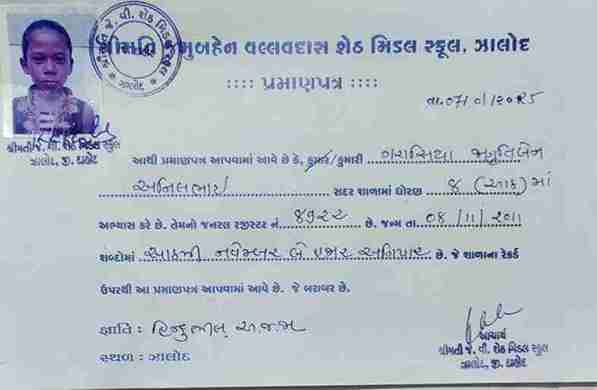 શ્રીમતિ જમુબહેન વલ્લવદાસ શેઠ મિડલ સ્કૂલ, ઝાલોદ
:::: પ્રમાણપત્ર ::::
તા.
શ્રીમતી જે. વી. શેઠ મિડલ સ્કુલ
ઝાલોદ, જી. દાહોદ
આથી પ્રમાણપત્ર આપવામાં આવે છે કે, કુમાર/કુમારી ગરાસિયા જાગૃતિબેન
અનિલભાઇ સદર શાળામાં ધોરણ ૮ (આઠ) માં
અભ્યાસ કરે છે. તેમનો જનરલ રજીસ્ટર નં. છે. જન્મ તા ૦૮/૧૧/૨૦૧૧
શબ્દોમાં આઠમી નવેમ્બર બે હજાર અગિયાર છે. જે શાળાના રેકર્ડ
ઉપરથી આ પ્રમાણપત્ર આપવામાં આવે છે. જે બરાબર છે.
જ્ઞાતિ : હિન્દુ ભીલ અ.જ.જા
સ્થળ : ઝાલોદ
આચાર્ય
શ્રીમતી જે. વી. શેઠ મિડલ સ્કુલ
ઝાલોદ, જી. દાહોદ